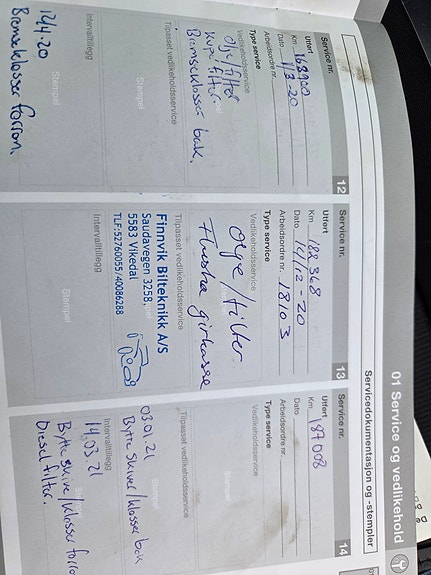 01 Service og vedlikehold
Servicedokumentasjon og -stempler
Service nr. 12
Utført
Km 168900
Dato 1/3-20
Arbeidsordre nr.
Type service
Vedlikeholdsservice
Olje/filter
Kupefilter.
Bremseklosser bak.
Tilpasset vedlikeholdsservice
Stempel
Intervalltillegg
Stempel
12/4.20
Bremseklosser forran.
Service nr. 13
Utført
Km 182 368
Dato 14/12-20
Arbeidsordre nr. 18103
Type service
Vedlikeholdsservice
Olje/filter
Flusha girkasse
Tilpasset vedlikeholdsservice
Finnvik Bilteknikk A/S
Saudavegen 3258.
5583 Vikedal
TLF:52760055/40086288
Intervalltillegg
Stempel
Service nr. 14
Utført
Km 187008
Dato
Arbeidsordre nr.
Type service
Vedlikeholdsservice
Stempel
Tilpasset vedlikeholdsservice
03.01.21
Bytte skiver/klosser bak
Intervalltillegg
14.03.21
Bytte skive/klosser forran
Diesel filter.